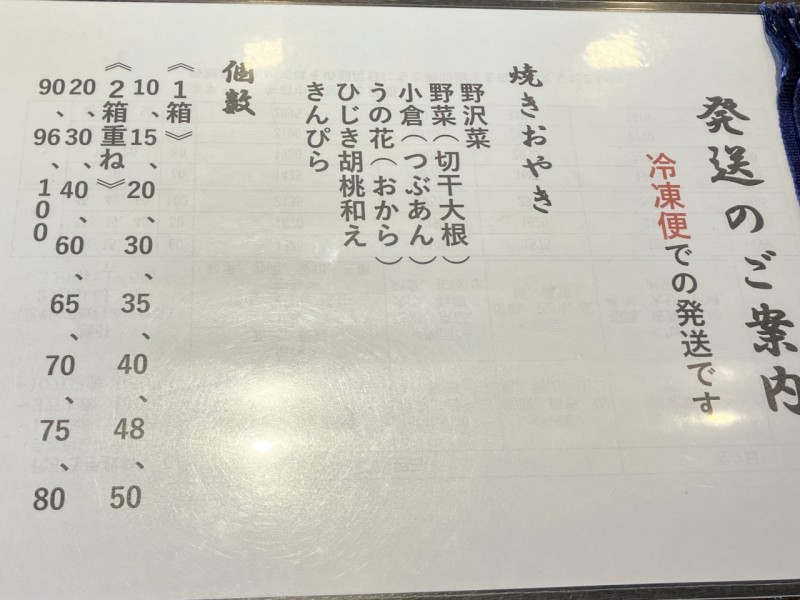 発送のご案内
冷凍便での発送です
焼きおやき
野沢菜
野菜（切干大根）
小倉（つぶあん）
うの花（おから）
ひじき胡桃和え
きんぴら
個数
《１箱》
10、15、20、30、35、40、48、50
《２箱重ね》
20、30、40、60、65、70、75、80
90、96、100